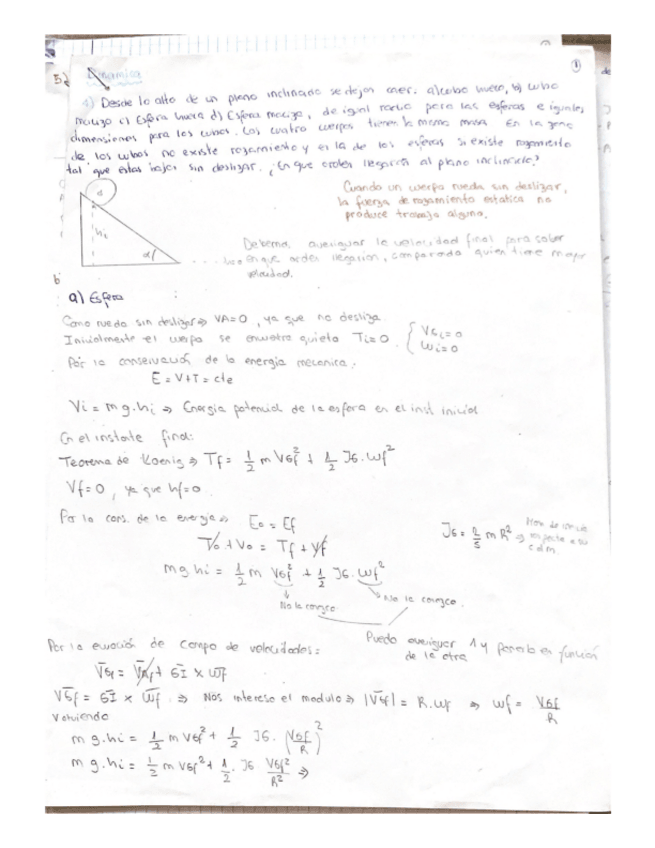 5) Dinamica
1
4) Desde lo alto de un plano inclinado se dejan caer: a) cubo hueco, b) cubo
macizo c) Esfera hueca d) Esfera maciza, de igual radio para las esferas e iguales
dimensiones para los cubos. Los cuatro cuerpos tienen la misma masa. En la zona
de los cubos no existe rozamiento y en la de las esferas si existe rozamiento
tal que estas bajan sin deslizar. ¿En que orden llegarán al plano inclinado?
Cuando un cuerpo rueda sin deslizar,
la fuerza de rozamiento estatica no
produce trabajo alguno.
hi
Debemos averiguar la velocidad final para saber
en que orden llegarían, comparando quien tiene mayor
velocidad.
b
a) Esfera :
Como rueda sin deslizar ⇒ VA=0, ya que no desliza.
Inicialmente el cuerpo se encuentra quieto Ti=0. { VGi=0
Wi=0
Por la conservación de la energia mecanica:
E = V+T = cte
Vi = m g.hi ⇒ Energia potencial de la esfera en el inst inicial
En el instante final:
Teorema de Koenig ⇒ Tf = 1/2 m VGf² + 1/2 JG. Wf²
Vf=0, ya que hf=0
Por la cons. de la energia ⇒ E0 = Ef
JG = 2/5 m R² ⇒ Mom de inercia
respecto a su
c.d.m.
T0 + V0 = Tf + Vf
m g hi = 1/2 m VGf² + 1/2 JG. Wf²
No la conozco
No la conozco.
Por la ecuación de Campo de velocidades:
Puedo averiguar 1 y ponerla en función
de la otra
VGf = VIf + GI x Wf
VGf = GI x Wf ⇒ Nos interesa el modulo ⇒ |VGf| = R.Wf ⇒ Wf = VGf/R
Volviendo
m g.hi = 1/2 m VGf² + 1/2 JG. (VGf/R)²
m g.hi = 1/2 m VGf² + 1/2. JG VGf²/R² ⇒